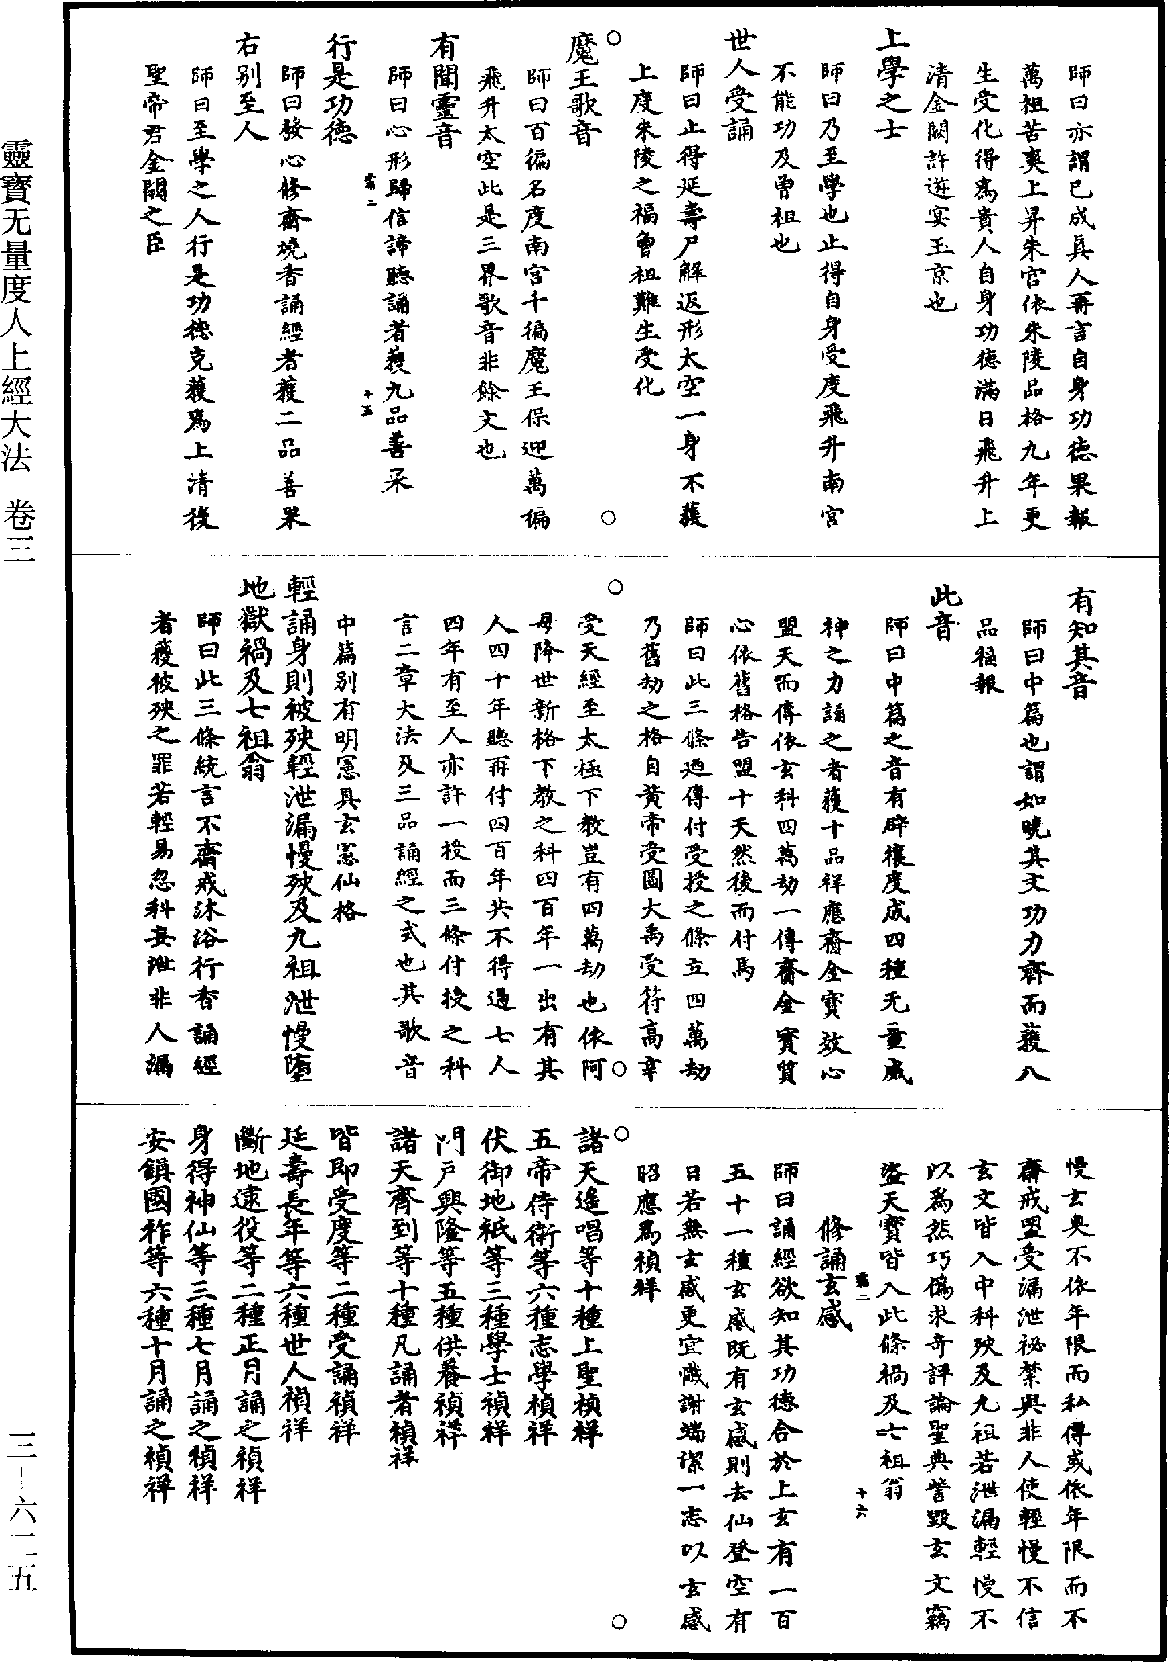 師曰亦謂已成真人再言自身功德果報
萬祖苦爽上昇朱宮依朱陵品格九年更
生受化得爲貴人自身功德滿日飛升上
清金闕許遊宴玉京也
上學之士
師曰乃至學也止得自身受度飛升南宮
不能功及曾祖也
世人受誦
師曰止得延壽尸解返形太空一身不獲
上度朱陵之福曾祖難生受化
魔王歌音
師曰百徧名度南宮千徧魔王保迎萬徧
飛升太空此是三界歌音非餘文也
有聞靈音
師曰心形歸信諦聽誦者獲九品善果
十五
行是功德
師曰發心修齋燒香誦經者獲二品善果
右别至人
師曰至學之人行是功德克獲爲上清後
聖帝君金闕之臣
有知其音
師曰中篇也謂如曉其文功力齊而獲八
品福報
此音
師曰中篇之音有辟禳度成四種无量威
神之力誦之者獲十品祥應齋金寶效心
盟天而傳依玄科四萬劫一傳齋金寶質
心依舊格告盟十天然後而付焉
師曰此三條廼傳付受授之條立四萬劫
乃舊劫之格自黄帝受圖大禹受符高辛
受天經至太極下教豈有四萬劫也依阿
母降世新格下教之科四百年一出有其
人四十年聽再付四百年共不得過七人
四年有至人亦許一授而三條付授之科
言二章大法及三品誦經之式也其歌音
中篇别有明憲具玄憲仙格
輕誦身則被殃輕泄漏慢殃及九祖泄慢墮
地獄禍及七祖翁
師曰此三條統言不齋戒沐浴行香誦經
者獲彼殃之罪若輕易忽科妄泄非人漏
慢玄奥不依年限而私傳或依年限而不
齋戒盟受漏泄祕禁與非人使輕慢不信
玄文皆入中科殃及九祖若泄漏輕慢不
以爲然巧僞求奇評論聖典訾毀玄文竊
盜天寶皆入此條禍及七祖翁
十六
修誦玄感
師曰誦經欲知其功德合於上玄有一百
五十一種玄感既有玄感則去仙登空有
日若無玄感更宜懺謝端潔一志以玄感
昭應爲禎祥
諸天遥唱等十種上聖禎祥
五帝侍衛等六種志學禎祥
伏御地祇等三種學士禎祥
門戶興隆等五種供養禎祥
諸天齊到等十種凡誦者禎祥
皆即受度等二種受誦禎祥
延壽長年等六種世人禎祥
斷地逮役等二種正月誦之禎祥
身得神仙等三種七月誦之禎祥
安鎮國祚等六種十月誦之禎祥
靈寶无量度人上經大法 卷三
三-六二五